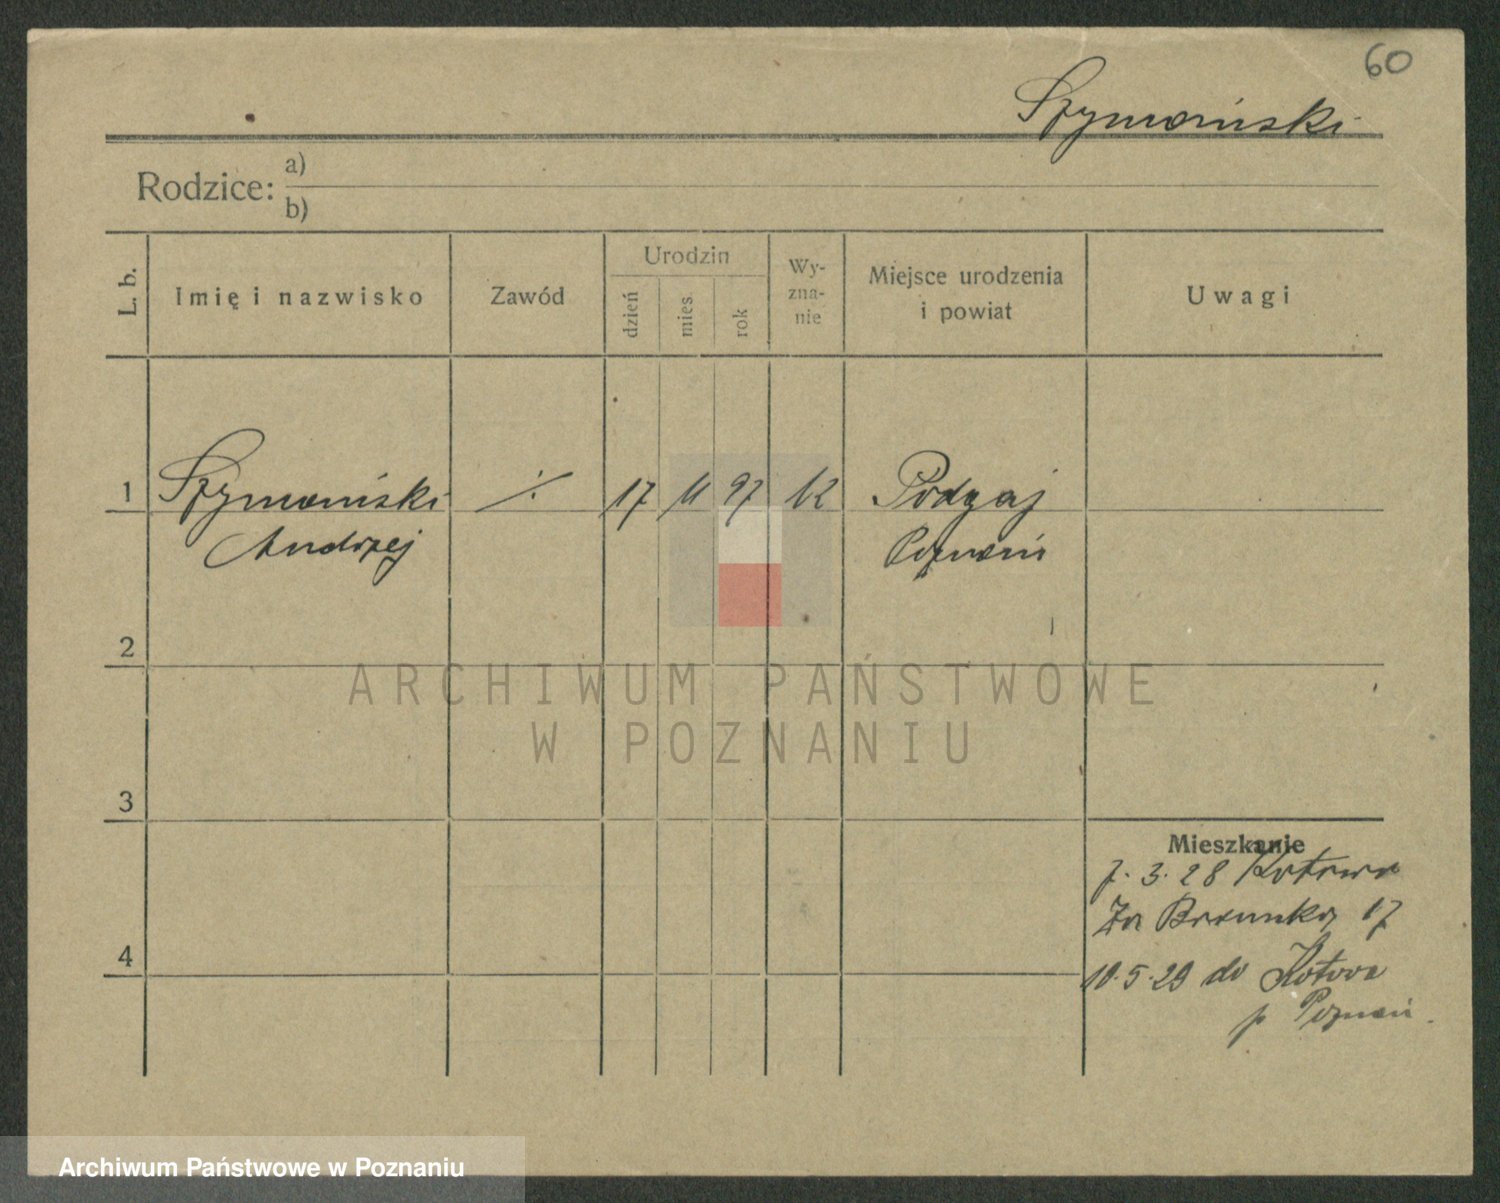 60
Szymański
Rodzice: a)
b)
L. b.
Imię i nazwisko
Zawód
Urodzin
dzień
mies.
rok
Wy-
zna-
nie
Miejsce urodzenia
i powiat
Uwagi
1 Szymański ·/. 17 11 97 k Podgaj
Andrzej Poznań
2
ARCHIWUM PAŃSTWOWE
W POZNANIU
3
Mieszkanie
7. 3. 28 Kotowo
Za Bramką 17
4
10.5.29 do Kotowa
p Poznań.
Archiwum Państwowe w Poznaniu